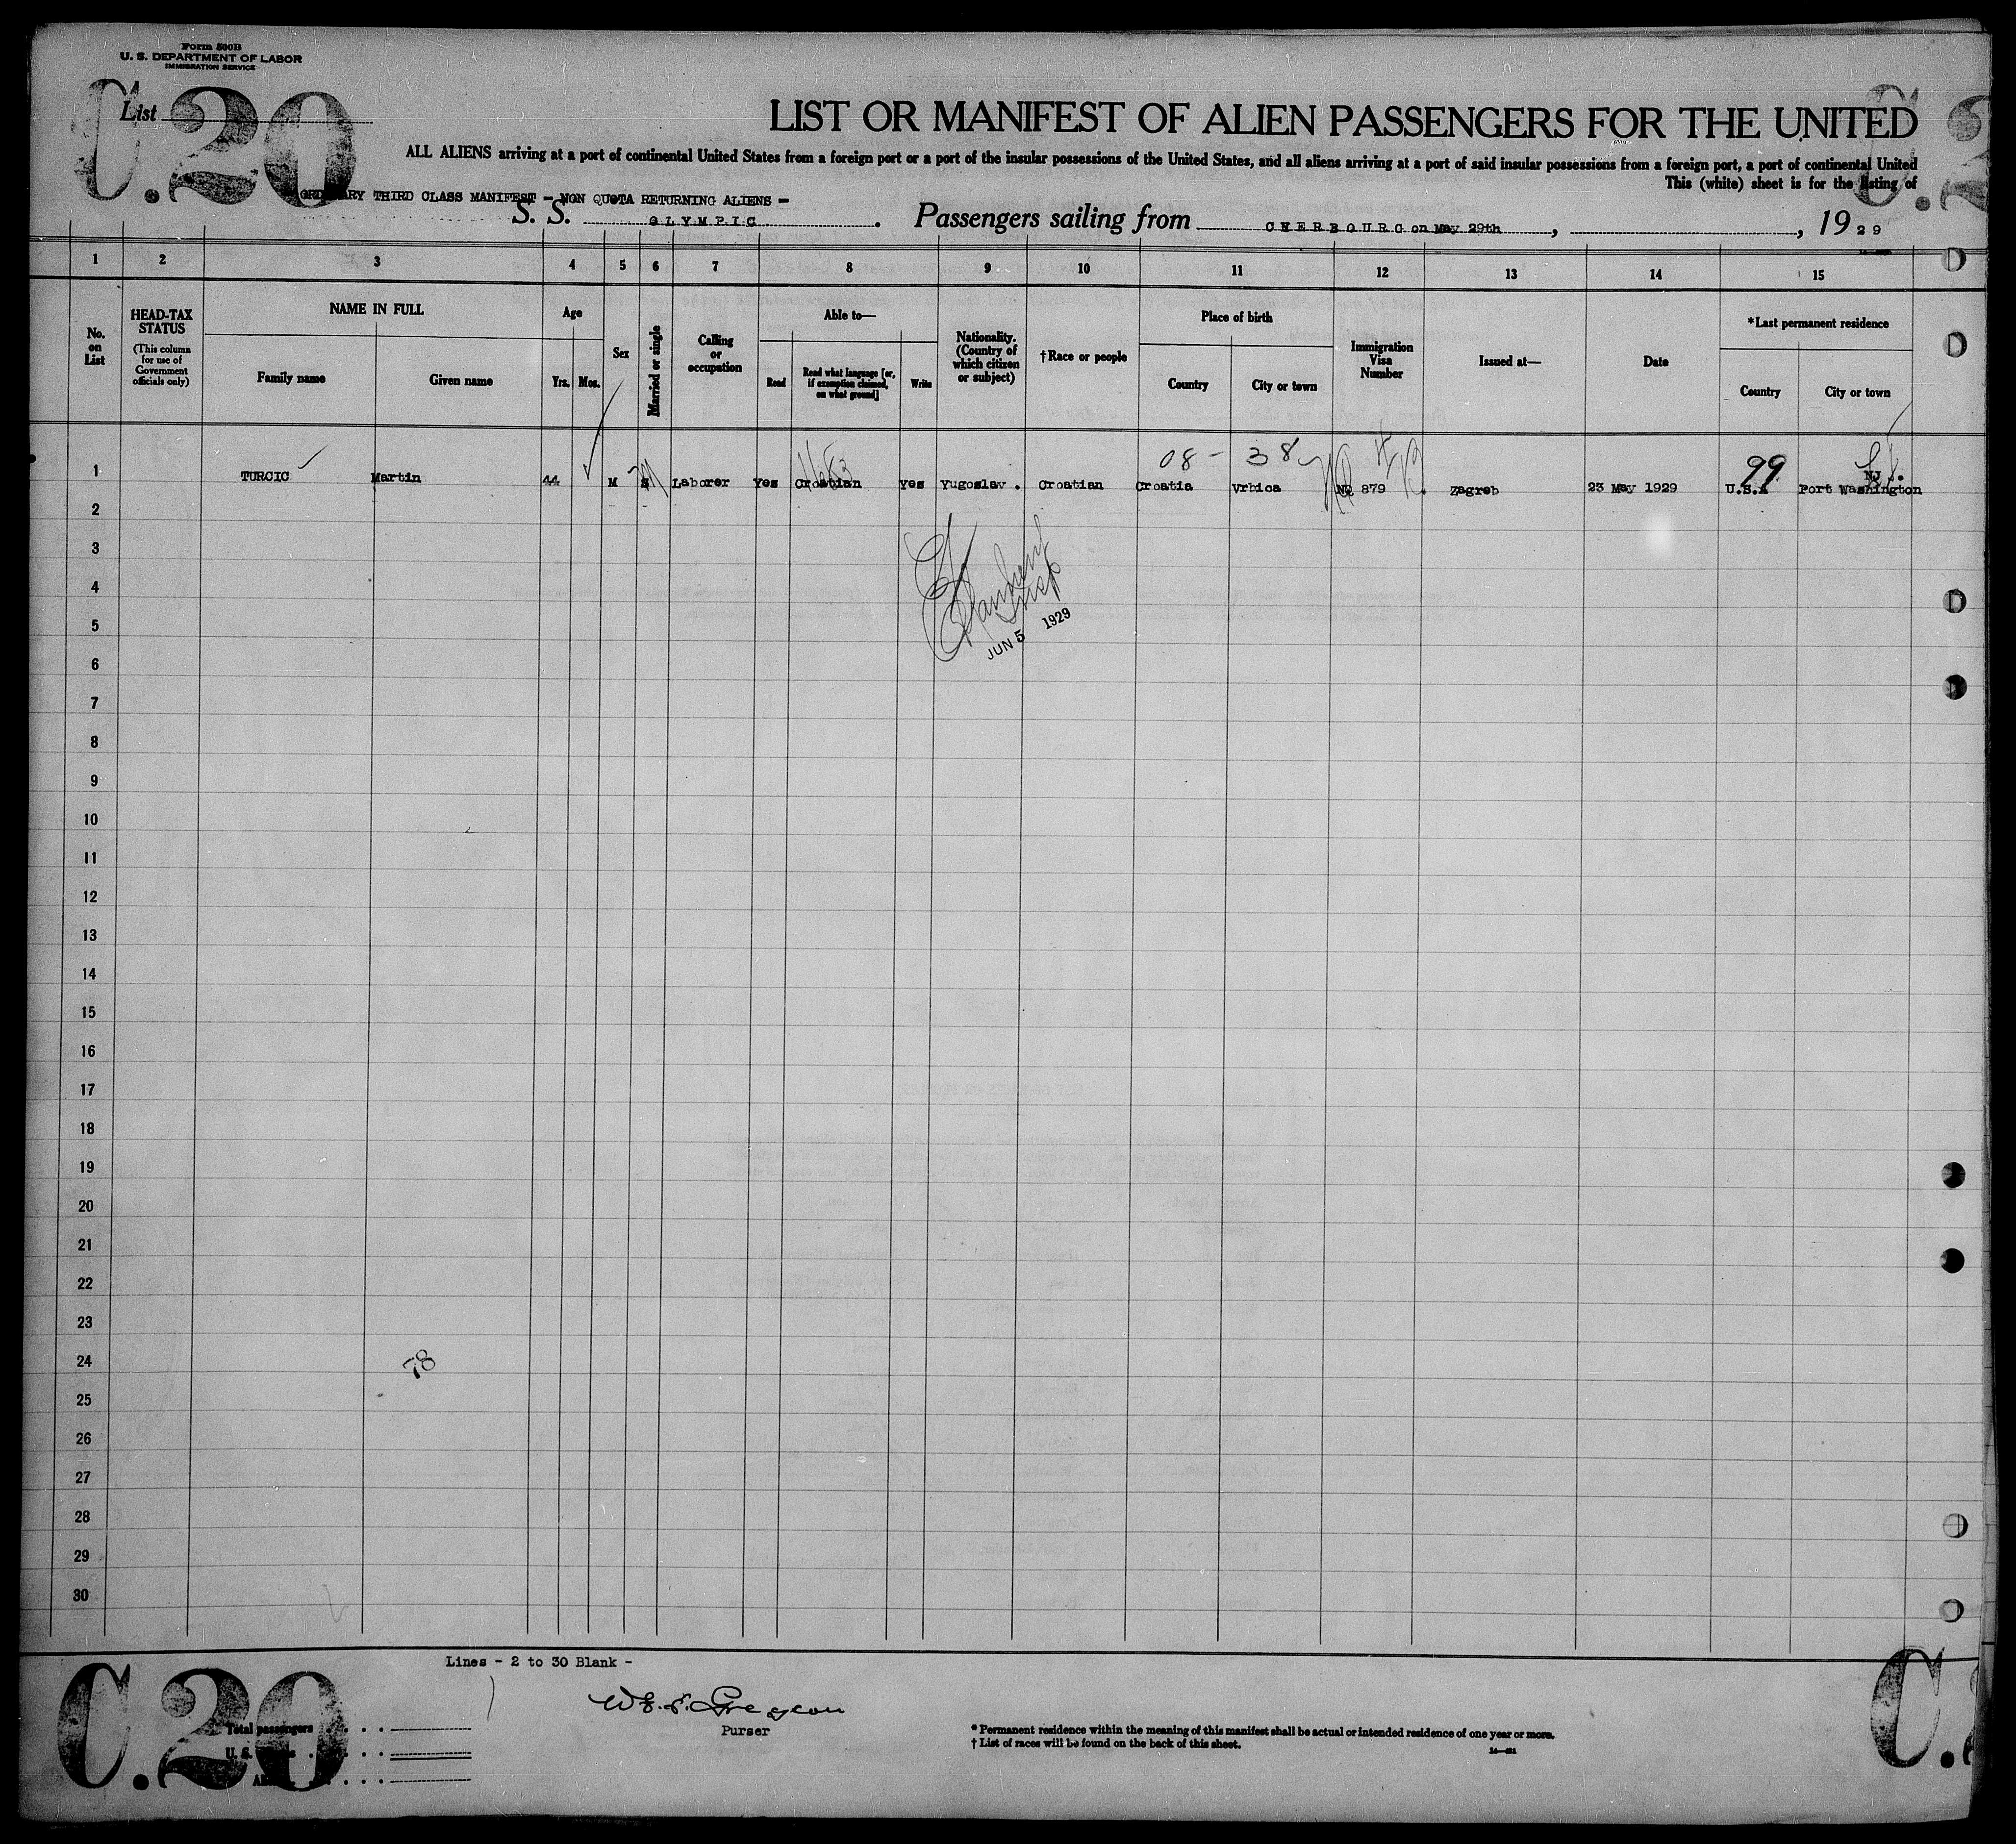 Form 500B
U. S. DEPARTMENT OF LABOR
IMMIGRATION SERVICE
C.20
List
LIST OR MANIFEST OF ALIEN PASSENGERS FOR THE UNITED
ALL ALIENS arriving at a port of continental United States from a foreign port or a port of the insular possessions of the United States, and all aliens arriving at a port of said insular possessions from a foreign port, a port of continental United
This (white) sheet is for the listing of
ORDINARY THIRD CLASS MANIFEST - NON QUOTA RETURNING ALIENS -
S. S. OLYMPIC. Passengers sailing from CHERBOURG on May 29th, , 19 29
1 2 3 4 5 6 7 8 9 10 11 12 13 14 15
No. on List
HEAD-TAX STATUS
(This column for use of Government officials only)
NAME IN FULL
Family name
Given name
Age
Yrs. Mos.
Sex
Married or single
Calling or occupation
Able to—
Read
Read what language [or, if exemption claimed, on what ground]
Write
Nationality. (Country of which citizen or subject)
†Race or people
Place of birth
Country
City or town
Immigration Visa Number
Issued at—
Date
*Last permanent residence
Country
City or town
08- 38
99
1 TURCIC Martin 44 M Laborer Yes Croatian Yes Yugoslav. Croatian Croatia Vrbica NQ 879 Zagreb 23 May 1929 U.S.A Port Washington
2
3
4
5
JUN 5 1929
6
7
8
9
10
11
12
13
14
15
16
17
18
19
20
21
22
23
24
78
25
26
27
28
29
30
Lines - 2 to 30 Blank -
C.20
Purser
Total passengers
U. S.
* Permanent residence within the meaning of this manifest shall be actual or intended residence of one year or more.
† List of races will be found on the back of this sheet.